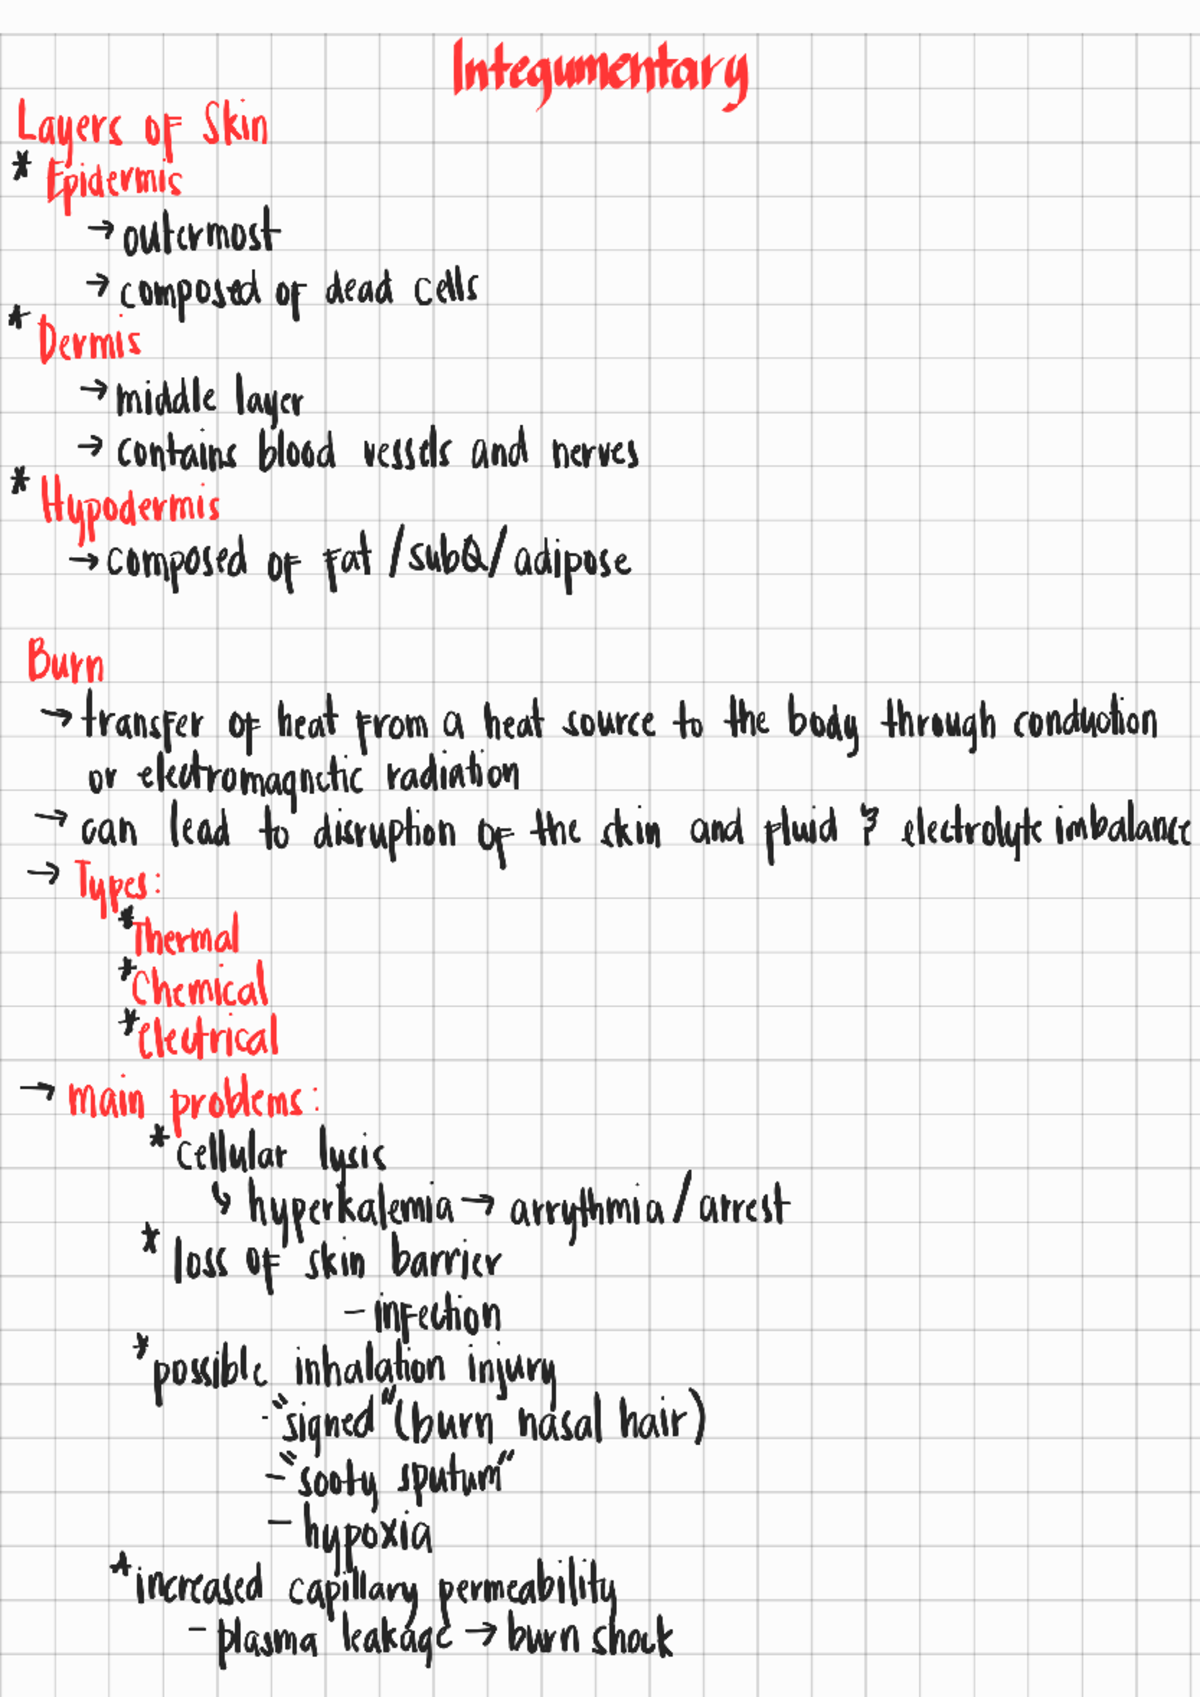 Integumentary
Layers of Skin
* Epidermis
→ outermost
→ composed of dead cells
* Dermis
→ middle layer
→ contains blood vessels and nerves
* Hypodermis
→ composed of fat /subQ/ adipose
Burn
→ transfer of heat from a heat source to the body through conduction
or electromagnetic radiation
→ can lead to disruption of the skin and fluid & electrolyte imbalance
→ Types:
* Thermal
* Chemical
* Electrical
→ main problems:
* cellular lysis
↳ hyperkalemia → arrythmia / arrest
* loss of skin barrier
- infection
* possible inhalation injury
- "signed" (burn nasal hair)
- "sooty sputum"
- hypoxia
* increased capillary permeability
- plasma leakage → burn shock